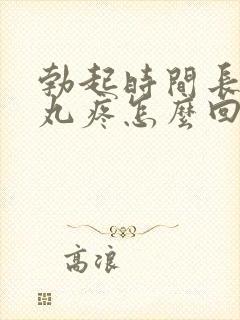 勃起時間長
丸疼怎麼回
高浪